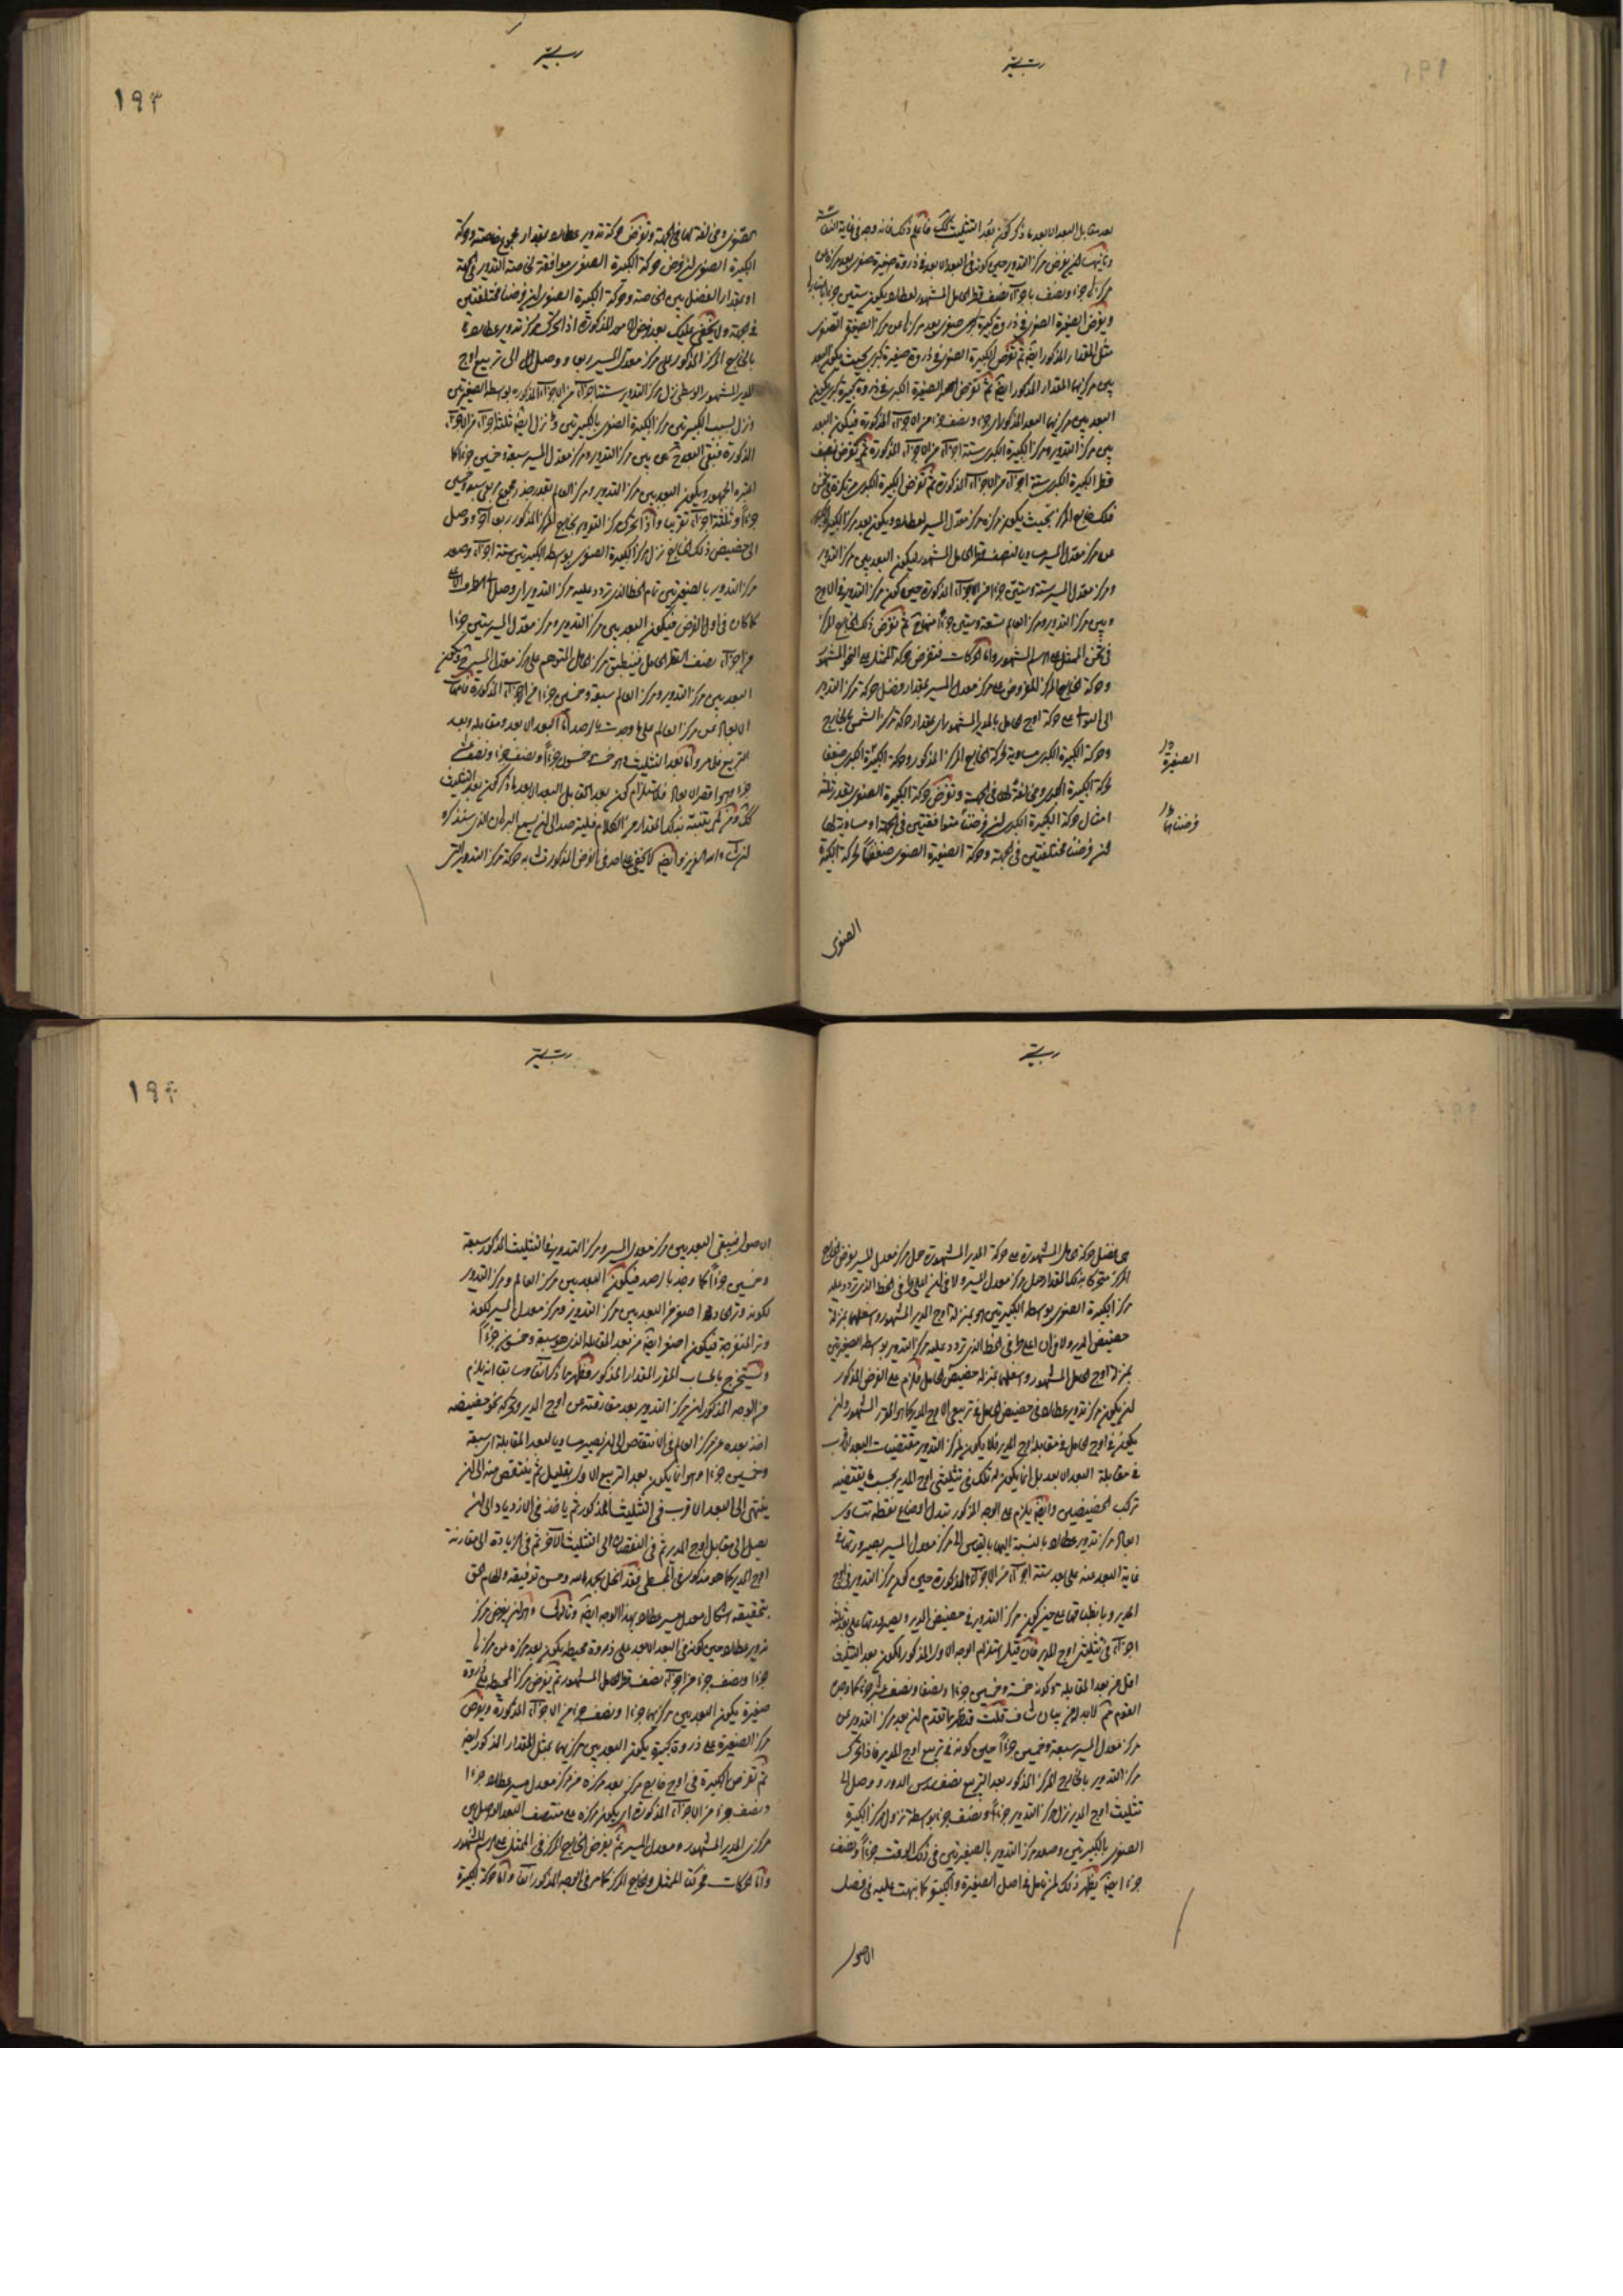 ١٩٣
بعد مقابل البعد الابعد
مركز التدوير حين كونه في البعد الابعد في ذروة صغيرة صغرى بعد مركزها عن
ونصف قطر الحامل المشهور لعطارد يكون ستين جزءا
ويفرض الصغيرة الصغرى في ذروة كبيرة صغرى بعد مركزها عن مركز الصغيرة الصغرى
مثل المقدار المذكور ايضا ثم نفرض الكبيرة الصغرى في ذروة صغيرة كبرى بحيث يكون البعد
بين مركزيهما المقدار المذكور ايضا ثم نفرض الصغيرة الكبرى في ذروة كبيرة كبرى يكون
البعد بين مركزيهما البعد المذكور اي جزء ونصف جزء من الاجزاء المذكورة فيكون البعد
بين مركز التدوير ومركز الكبيرة الكبرى ستة اجزاء من الاجزاء المذكورة ثم نفرض نصف
قطر الكبيرة الكبرى ستة اجزاء من الاجزاء المذكورة ثم نفرض الكبيرة الكبرى مرتكزة في ثخن
فلك خارج المركز بحيث يكون مركزه مركز معدل المسير لعطارد ويكون بعد مركز الكبيرة الكبرى
عن مركز معدل المسير مساويا لنصف قطر الحامل المشهور ليكون البعد بين مركز التدوير
ومركز معدل المسير ستة وستين جزءا من الاجزاء المذكورة حين كون مركز التدوير في الاوج
وبين مركز التدوير ومركز العالم تسعة وستين جزءا منها ثم نفرض ذلك الخارج المركز
في ثخن الممثل على الرسم المشهور واما الحركات فنفرض حركة الممثل على النحو المشهور
وحركة الخارج المركز المفروض على مركز معدل المسير بمقدار فضل حركة مركز التدوير
الى التوالي على حركة اوج الحامل بالمدير المشهور اي بمقدار حركة مركز الشمس بالخارج
وحركة الكبيرة الكبرى مساوية لحركة الخارج المركز المذكور وحركة الصغيرة الكبرى ضعفا
لحركة الكبيرة الكبرى ومخالفة لها في الجهة ونفرض حركة الكبيرة الصغرى بقدر ثلثة
امثال حركة الكبيرة الكبرى ان فرضتا متوافقتين في الجهة او مساوية لها
ان فرضتا مختلفتين في الجهة وحركة الصغيرة الصغرى ضعفا لحركة الكبيرة
الصغيرة
فرضناها
الصغرى
الصغرى ومخالفة لها في الجهة ونفرض حركة تدوير عطارد بمقدار مجموع خاصته وحركة
الكبيرة الصغرى ان فرض حركة الكبيرة الصغرى موافقة لخاصة التدوير في الجهة
او بمقدار الفضل بين الخاصة وحركة الكبيرة الصغرى ان فرضتا مختلفتين
في الجهة ولا يخفى عليك بعد فرض الامور المذكورة اذا تحرك مركز تدوير عطارد
بالخارج المركز المذكور على مركز معدل المسير ربعا ووصل الى تربيع اوج
المدير المشهور الاوسط نزل مركز التدوير ستة اجزاء من الاجزاء المذكورة بواسطة الصغيرتين
ونزل بسبب الكبيرتين مركز الكبيرة الصغرى بالكبيرتين ايضا ثلثة اجزاء من الاجزاء
المذكورة فبقي البعد بين مركز التدوير ومركز معدل المسير سبعة وخمسين جزءا كما
اعتبره الجمهور ويكون البعد بين مركز التدوير ومركز العالم بقدر جذر مجموع مربعي سبعة وخمسين
جزءا وثلثة اجزاء تقريبا واذا تحرك مركز التدوير بخارج المركز المذكور ربعا آخر ووصل
الى حضيض ذلك الخارج نزل مركز الكبيرة الصغرى بواسطة الكبيرتين ستة اجزاء وصعد
مركز التدوير بالصغيرتين تمام الخط الذي تردد عليه مركز التدوير اي وصل
كما كان في اول الفرض فيكون البعد بين مركز التدوير ومركز معدل المسير ستين جزءا
من اجزاء نصف القطر الحامل فينطبق مركز الحامل المتوهم على مركز معدل المسير ويكون
البعد بين مركز التدوير ومركز العالم سبعة وخمسين جزءا من الاجزاء المذكورة
الابعاد عن مركز العالم على ما وجدت بالارصاد اما البعد الابعد ومقابله وبعد
التربيع فظاهر واما بعد التثليث فهو خمسة وخمسون جزءا ونصف جزء ونصف عشر
جزء وهو اقصر الابعاد فلاستلزام كون بعد المقابل البعد الابعد ما ذكر كون بعد التثليث
كذلك
ان شاء الله العزيز وايضا كما لا يخفى على احد في الفرض المذكور تشابه حركة مركز التدوير
١٩٤
هي فضل حركة الحامل المشهورة على حركة المدير المشهورة حول مركز معدل المسير بفرض الخارج
المركز متحركا بذلك المقدار حول مركز معدل المسير
مركز الكبيرة الصغرى بواسطة الكبيرتين هو بمنزلة اوج المدير المشهور واسفلهما بمنزلة
حضيض المدير ولا في ان اعلى طرفي الخط الذي تردد عليه مركز التدوير بواسطة الصغيرتين
بمنزلة اوج الحامل المشهور واسفلهما بمنزلة حضيض الحامل فلزم على الفرض المذكور
ان يكون مركز تدوير عطارد في حضيض الحامل في تربيعي الاوج المدير كما هو المقرر المشهور وان
يكون في اوج الحامل في مقابلة اوج المدير فلا يكون لمركز التدوير مقتضيات البعد الاقرب
في مقابلة البعد الابعد بل انما يكون له ذلك في تثليثي اوج المدير بحسب ما يقتضيه
تركب الحضيضين وايضا يلزم على الوجه المذكور تبدل اوضاع نقطة تتساوى
ابعاد مركز تدوير عطارد بالنسبة اليها بالقياس الى مركز معدل المسير بصيرورتها في
غاية البعد عنه على بعد ستة اجزاء من الاجزاء المذكورة حين كون مركز التدوير في اوج
المدير وبانطباقها عليه حين كون مركز التدوير في حضيض المدير وبصيرورتها على بعد ثلثة
اجزاء في تثليثي اوج المدير فان قيل استلزام الوجه الاول المذكور لكون بعد التثليث
اقل من بعد المقابلة وكونه خمسة وخمسين جزءا ونصفا ونصف عشر جزء كما وجده
القوم ثم لا بد له من بيان شاف قلت قد ظهر مما تقدم ان بعد مركز التدوير عن
مركز معدل المسير سبعة وخمسين جزءا حين كونه في تربيع اوج المدير فاذا تحرك
مركز التدوير بالخارج المركز المذكور بعد التربيع نصف سدس الدور ووصل الى
تثليث اوج المدير نزل مركز التدوير جزءا ونصف جزء بواسطة نزول مركز الكبيرة
الصغرى بالكبيرتين وصعد مركز التدوير بالصغيرتين في ذلك الوقت جزءا ونصف
جزء ايضا يظهر ذلك لمن تامل في اصل الصغيرة والكبيرة كما نبهت عليه في فصل
الاصول
الاصول فيبقى البعد بين مركز معدل المسير ومركز التدوير في التثليث المذكور سبعة
وخمسين جزءا كما وجد بالرصد فيكون البعد بين مركز العالم ومركز التدوير
لكونه وتر الحادة اصغر من البعد بين مركز التدوير ومركز معدل المسير لكونه
وتر المنفرجة فيكون اصغر ايضا من بعد المقابلة الذي هو سبعة وخمسون جزءا
ويستخرج بالحساب المقرر المقدار المذكور فظهر مما ذكر آنفا وسابقا انه يلزم
من الوجه المذكور ان مركز التدوير بعد مفارقته عن اوج المدير وتحركه نحو حضيضه
اخذ بعده عن مركز العالم في الانتقاص الى ان يصير مساويا لبعد المقابلة اي سبعة
وخمسين جزءا وهو انما يكون بعد التربيع الاول بقليل ثم ينتقص منه الى ان
ينتهي الى البعد الاقرب في التثليث المذكور ثم ياخذ في الازدياد الى ان
يصل الى مقابل اوج المدير ثم في النقصان الى التثليث الآخر ثم في الزيادة الى مقارنة
اوج المدير كما هو مذكور في المجسطي فقد انحل بحمد الله وحسن توفيقه والهام الحق
بتحقيقه اشكال معدل مسير عطارد بهذا الوجه ايضا وثالثها وهو ان يفرض مركز
تدوير عطارد حين كونه في البعد الابعد على ذروة محيطة يكون بعد مركزه عن مركزها
جزءا ونصف جزء من اجزاء نصف قطر الحامل المشهور ثم يفرض مركز المحيطة على ذروة
صغيرة يكون البعد بين مركزيهما جزءا ونصف جزء من الاجزاء المذكورة ويفرض
مركز الصغيرة على ذروة كبيرة يكون البعد بين مركزيهما بمثل المقدار المذكور ايضا
ثم نفرض الكبيرة في اوج خارج مركز بعد مركزه عن مركز معدل مسير عطارد جزءا
ونصف جزء من الاجزاء المذكورة اي يكون مركزه على منتصف البعد الواصل بين
مركزي المدير المشهور ومعدل المسير ثم يفرض الخارج المركز في الممثل على الرسم المشهور
واما الحركات فحركتا الممثل والخارج المركز كما مر في الوجه المذكور آنفا واما حركة الكبيرة